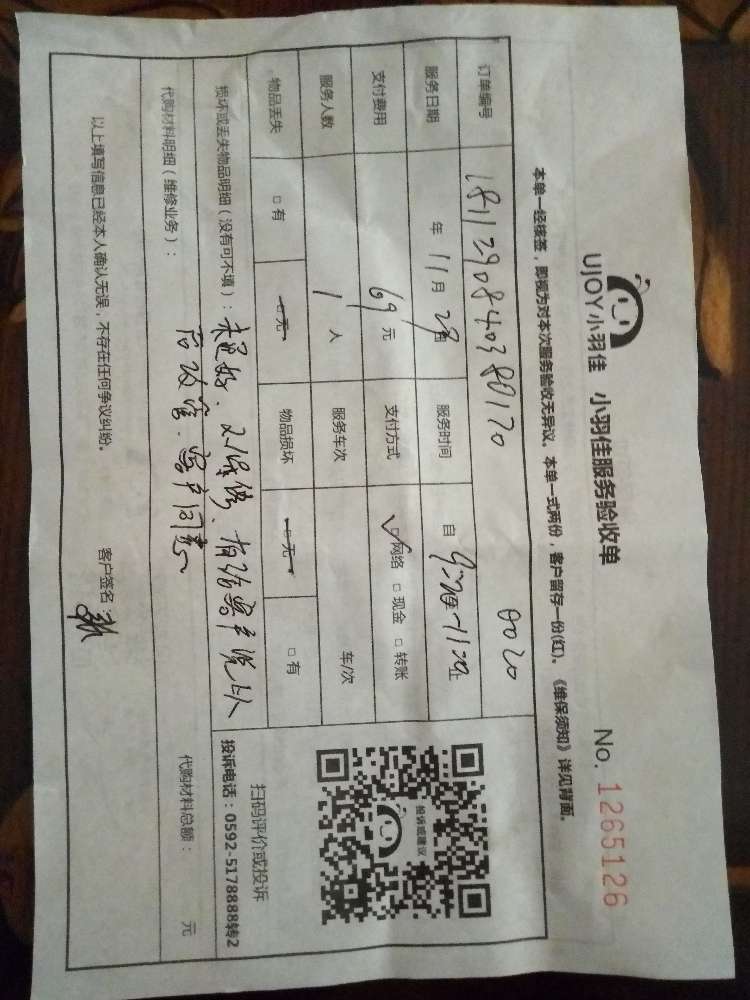 UJOY小羽佳 小羽佳服务验收单
No. 1265126
本单一经核签，即视为对本次服务验收无异议。本单一式两份，客户留存一份(红)。《维保须知》详见背面。
订单编号 1811290840380170 0020
服务日期 年 11月 29日 服务时间 自 9:20至11:20止
支付费用 69元 支付方式 ☑网络 □现金 □转账
服务人数 1人 服务车次 车/次
物品丢失 □有 □无 物品损坏 □无 □有
损坏或丢失物品明细（没有可不填）：有给客户说
代购材料明细（维修业务）：客户同意
代购材料总额： 元
以上填写信息已经本人确认无误，不存在任何争议纠纷。
客户签名：
投诉或建议
扫码评价或投诉
投诉电话：0592-5178888转2